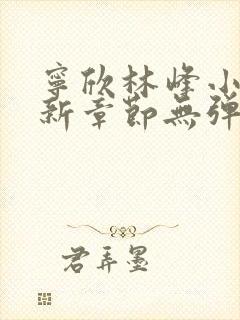 寧欣林峰小
新章節無弹
君弄墨